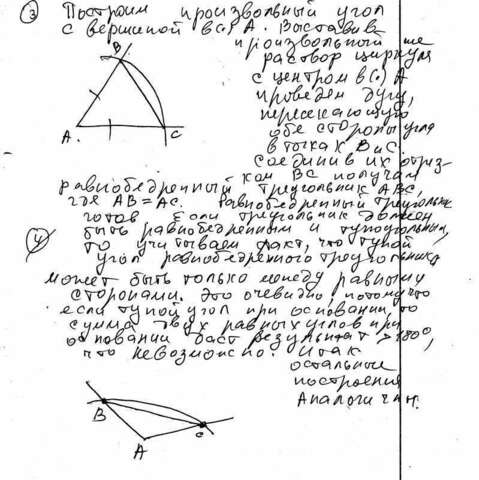 ③ Построим произвольный угол
с вершиной в (·) A. Выставив
произвольный же
раствор циркуля
с центром в (·) A
проведем дугу,
пересекающую
обе стороны угла
в точках B и C.
Соединив их отрез-
ком BC получаем
равнобедренный треугольник ABC,
где AB = AC. Равнобедренный треугольник
готов. Если треугольник должен
быть равнобедренным и тупоугольным,
то учитываем факт, что тупой
угол равнобедренного треугольника
может быть только между равными
сторонами. Это очевидно, потому что
если тупой угол при основании, то
сумма двух равных углов при
основании даст результат > 180°,
что невозможно. Итак
остальные
построения
Аналогичн.
B
A
C
④
B
A
C